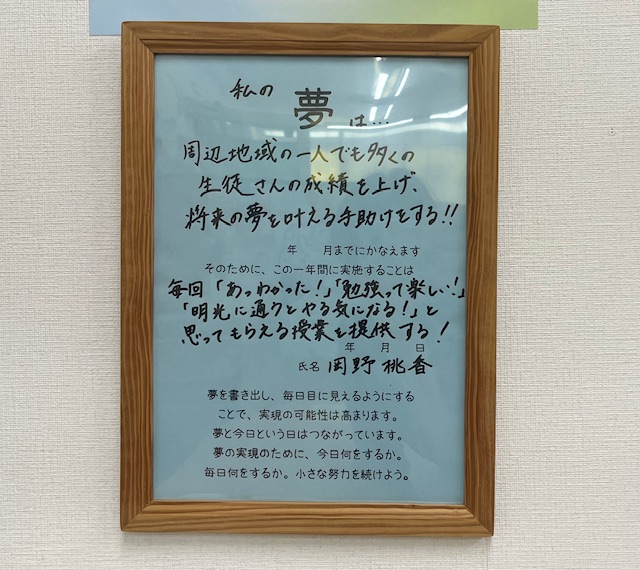 私の 夢 は…
周辺地域の一人でも多くの
生徒さんの成績を上げ、
将来の夢を叶える手助けをする!!
年 月までにかなえます
そのために、この一年間に実施することは
毎回「あっわかった!」「勉強って楽しい!」
「明光に通うとやる気になる!」と
思ってもらえる授業を提供する!
年 月 日
氏名 岡野 桃香
夢を書き出し、毎日目に見えるようにする
ことで、実現の可能性は高まります。
夢と今日という日はつながっています。
夢の実現のために、今日何をするか。
毎日何をするか。小さな努力を続けよう。